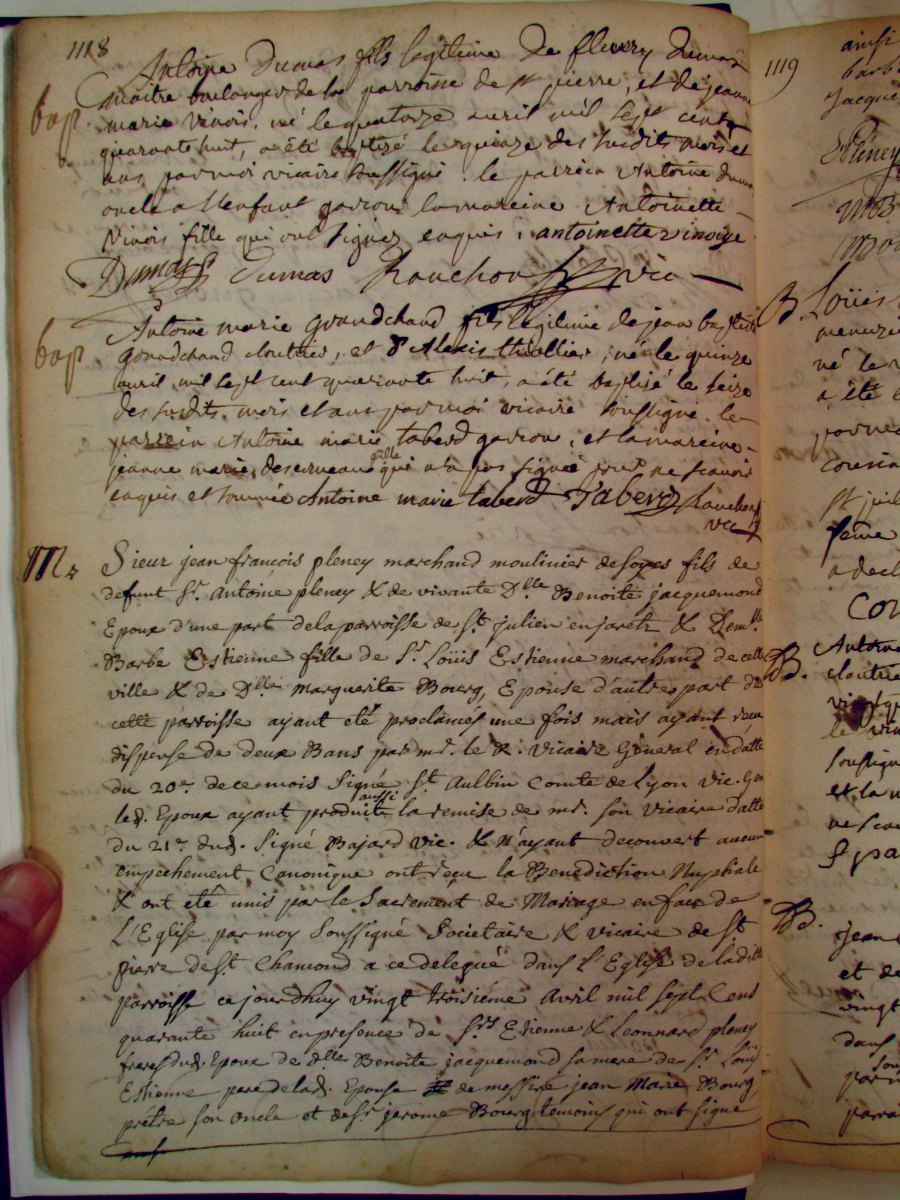 1118
bap.
Antoine Dumas fils legitime de fleury Dumas
maitre boulanger de la parroisse de st pierre, et de jeanne
marie vinois, né le quatorze avril mil sept cent
quarante huit, a été baptizé le quinze des susdits mois et
ans par moi vicaire soussigné. le parrein Antoine dumas
oncle a l'enfant garçon la mareine Antoinette
Vinois fille qui ont signez enquis. antoinette vinoise
Dumas Dumas Rouchon vic
bap
Antoine marie grandchand fils legitime de jean baptiste
grandchand cloutrier, et d'Alexis thiollier, né le quinze
avril mil sept cent quarante huit, a été baptisé le seize
des susdits mois et ans par moi vicaire soussigné. le
parrein Antoine marie taberd garçon, et la mareine
jeanne marie deserveaux fille qui n'a pas signé pour ne scavoir
enquis et sommée Antoine marie taberd Taberd Rouchon
vic
M.
Sieur jean francois pleney marchand moulinier de soyes fils de
defunt Sr. Antoine pleney & de vivante Dlle. Benoite jacquemond
Epoux d'une part dela parroisse de St. julien en jaretz & Demlle.
Barbe Estienne fille de Sr. Loüis Estienne marchand de cette
ville & de Dlle marguerite Bourg, Epouse d'autre part de
cette parroisse ayant eté proclamés une fois mais ayant receu
dispense de deux Bans par mr. le g. vicaire General en datte
du 20e. de ce mois Signé St. Aulbin Comte de Lyon Vic. Gen
led. Epoux ayant produit aussi la remise de mr. son vicaire datte
du 21e. dud. Signé Bajard vic. & n'ayant decouvert aucun
empechement Canonique ont recu la Benediction Nuptiale
& ont eté unis par le Sacrement de Mariage en face de
L'Eglise par moy Soussigné Societaire & vicaire de St
pierre de St. Chamond a ce delegué dans l'Eglise de ladite
parroisse ce jourdhuy vingt troisieme Avril mil sept Cent
quarante huit en presence de Srs Etienne & Leonnard pleney
freres dud. Epoux de dlle Benoite jacquemond sa mere de Sr. Loüis
Estienne pere de lad. Epouse de messire jean Marie Bourg
prêtre son oncle et de Sr. jerome Bourg temoins qui ont signé
1119
ainsi
barb
jacque
Pleney
B.
Loüis
menuzi
né le
a été
par
cousin
st juil
feme
a decl
B.
Antoine
cloutri
vingt
le
soussigné
et la m
ne sca
B.
jean
et de
vingt
dans
sous
par
parra